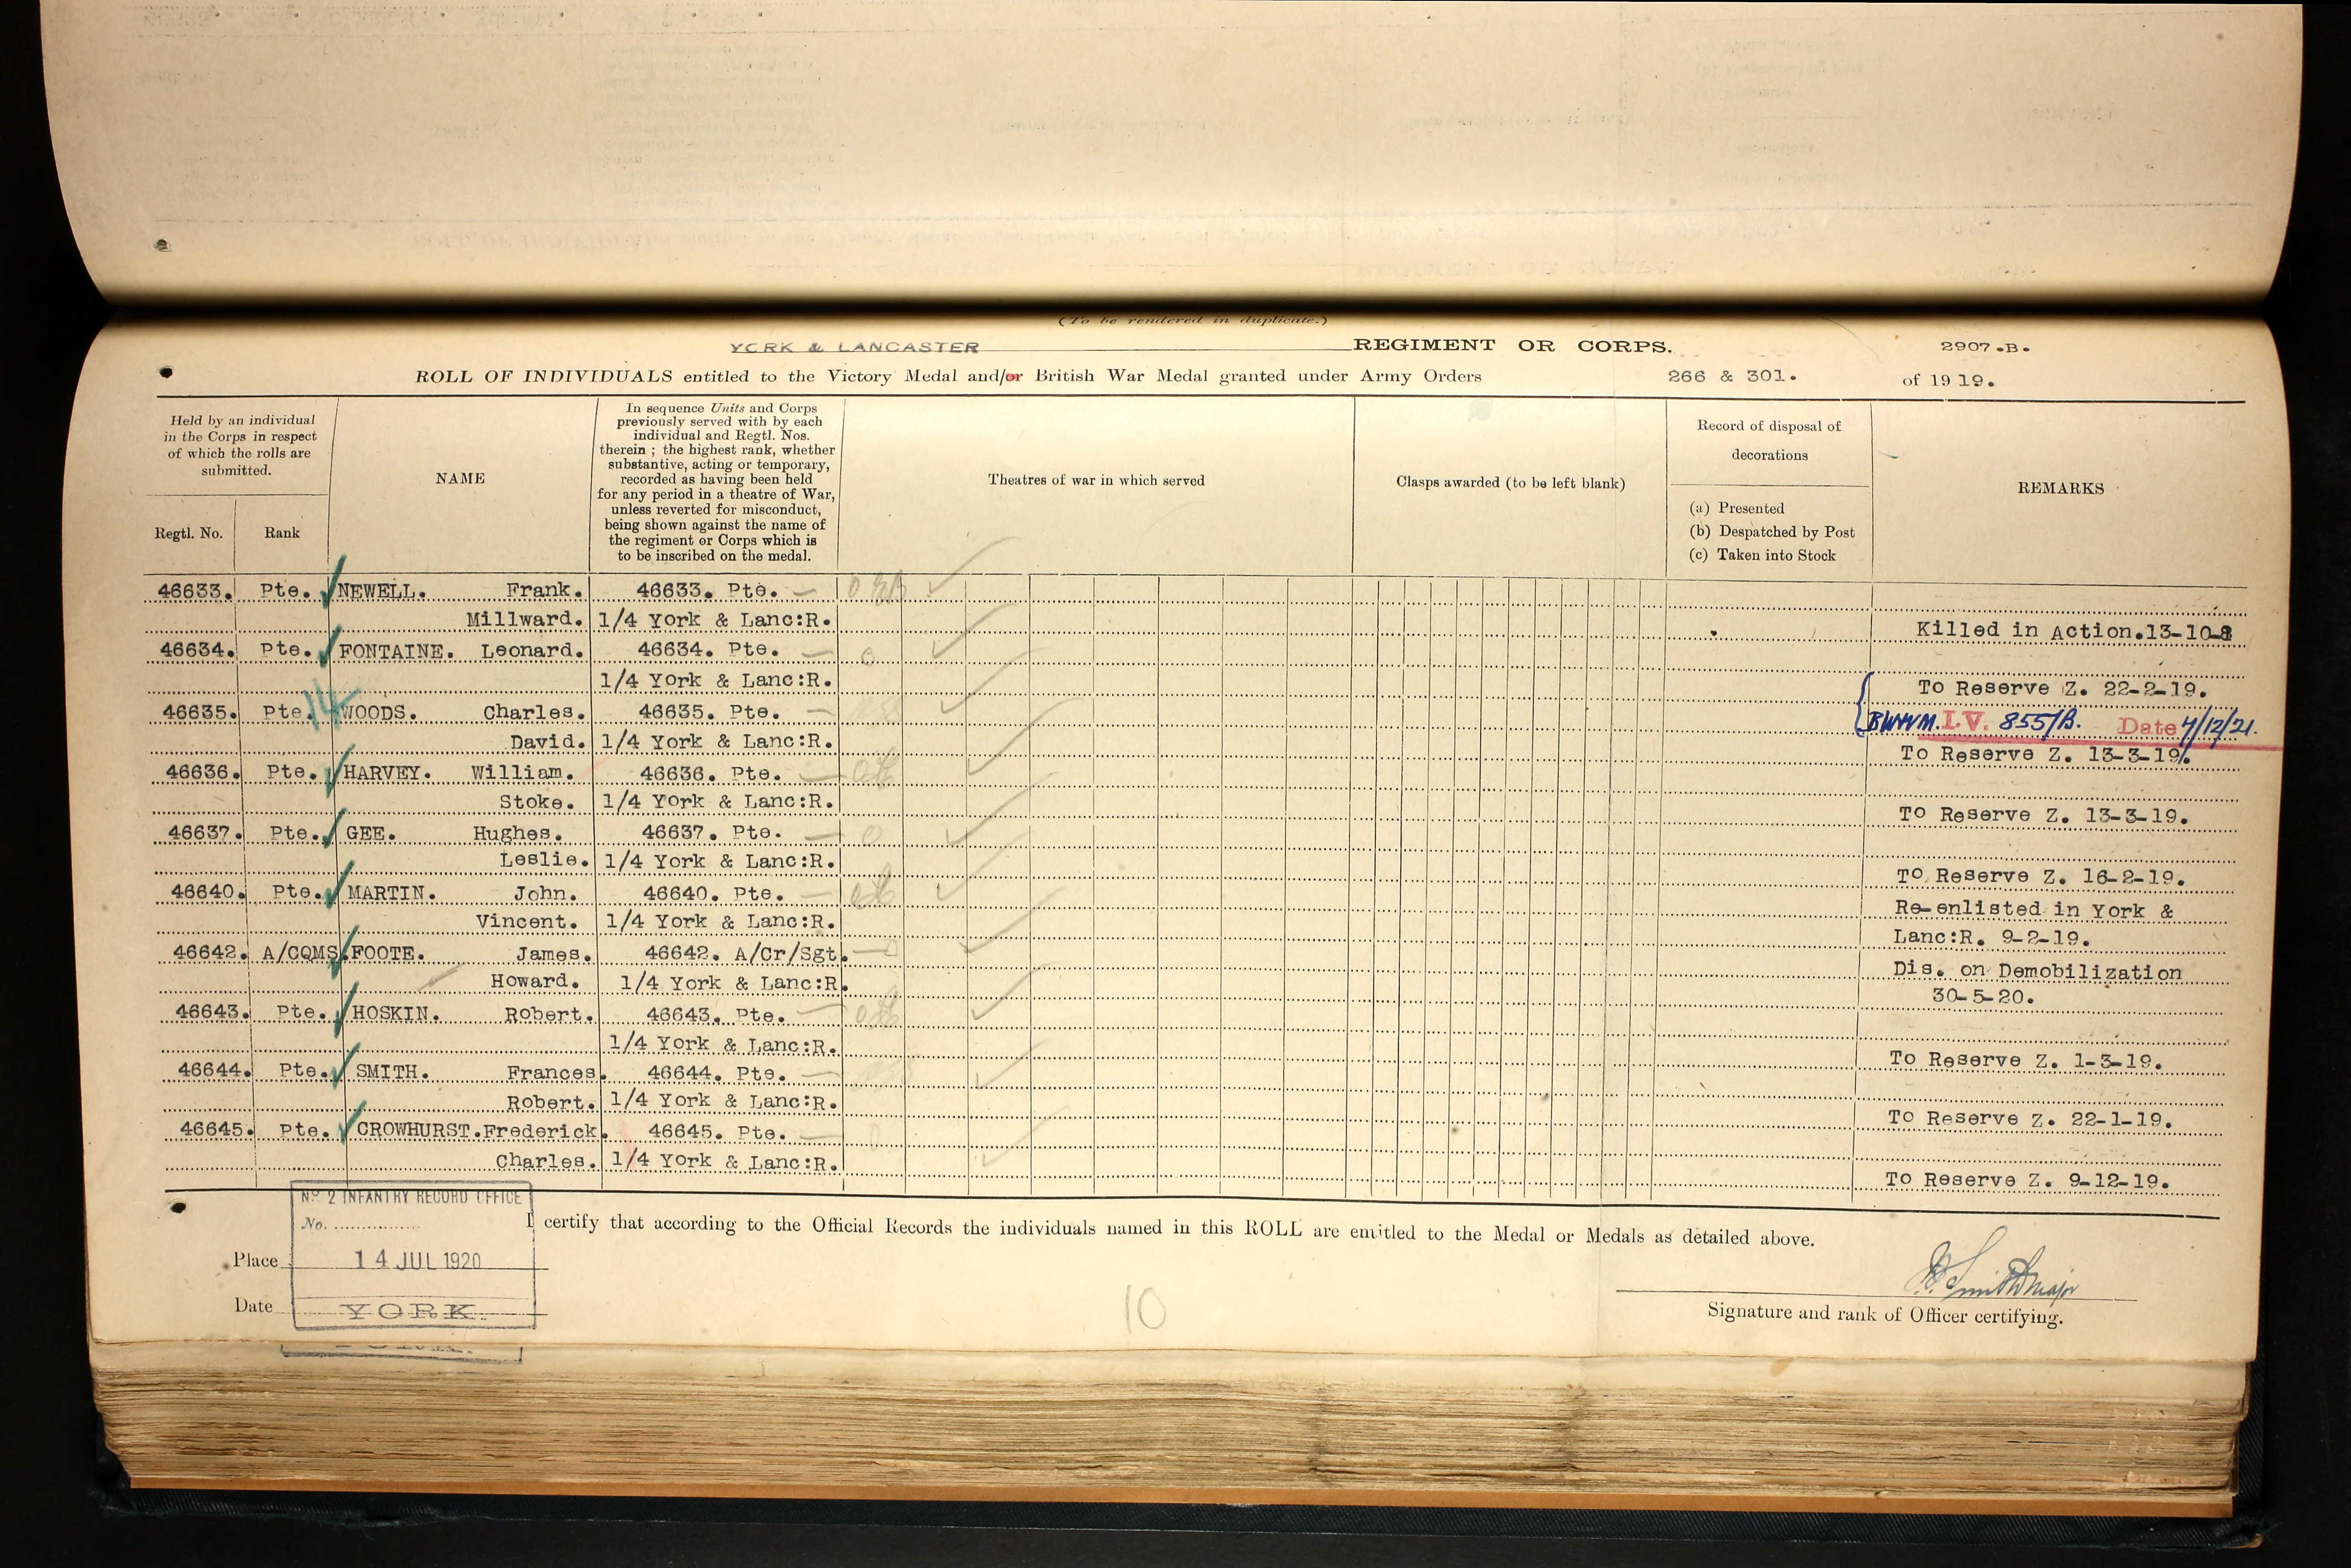 (To be rendered in duplicate.)
YORK & LANCASTER REGIMENT OR CORPS. 2907.B.
ROLL OF INDIVIDUALS entitled to the Victory Medal and/or British War Medal granted under Army Orders 266 & 301. of 1919.
Held by an individual
in the Corps in respect
of which the rolls are
submitted.
Regtl. No. Rank
NAME
In sequence Units and Corps
previously served with by each
individual and Regtl. Nos.
therein ; the highest rank, whether
substantive, acting or temporary,
recorded as having been held
for any period in a theatre of War,
unless reverted for misconduct,
being shown against the name of
the regiment or Corps which is
to be inscribed on the medal.
Theatres of war in which served
Clasps awarded (to be left blank)
Record of disposal of
decorations
(a) Presented
(b) Despatched by Post
(c) Taken into Stock
REMARKS
46633. Pte. NEWELL. Frank. 46633. Pte.
Millward. 1/4 York & Lanc:R. Killed in Action.13-10-8
46634. Pte. FONTAINE. Leonard. 46634. Pte.
1/4 York & Lanc:R. To Reserve Z. 22-2-19.
46635. Pte. 14 WOODS. Charles. 46635. Pte. BWVM. I.V. 855/B. Date 7/12/21.
David. 1/4 York & Lanc:R. To Reserve Z. 13-3-19.
46636. Pte. HARVEY. William. 46636. Pte.
Stoke. 1/4 York & Lanc:R. To Reserve Z. 13-3-19.
46637. Pte. GEE. Hughes. 46637. Pte.
Leslie. 1/4 York & Lanc:R. To Reserve Z. 16-2-19.
46640. Pte. MARTIN. John. 46640. Pte. Re-enlisted in York &
Vincent. 1/4 York & Lanc:R. Lanc:R. 9-2-19.
46642. A/CQMS. FOOTE. James. 46642. A/Cr/Sgt. Dis. on Demobilization
Howard. 1/4 York & Lanc:R. 30-5-20.
46643. Pte. HOSKIN. Robert. 46643. Pte.
1/4 York & Lanc:R. To Reserve Z. 1-3-19.
46644. Pte. SMITH. Frances. 46644. Pte.
Robert. 1/4 York & Lanc:R. To Reserve Z. 22-1-19.
46645. Pte. CROWHURST. Frederick. 46645. Pte.
Charles. 1/4 York & Lanc:R. To Reserve Z. 9-12-19.
Nº 2 INFANTRY RECORD OFFICE
No.
I certify that according to the Official Records the individuals named in this ROLL are entitled to the Medal or Medals as detailed above.
Place 14 JUL 1920
Date YORK.
10
Smith Major
Signature and rank of Officer certifying.